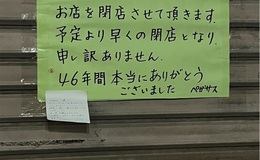 お店を閉店させて頂きます。
予定より早くの閉店となり
申し訳ありません。
46年間本当にありがとう
ございました ペガサス